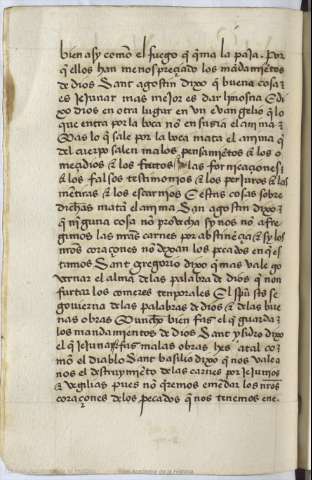 bien asy como el fuego q̃ q̃ma la paja. Por
q̃ ellos han menospreçiado los mãdamiẽtos
de dios Sant agostin dixo q̃ buena cosa
es jejunar mas mejor es dar limosna E di
xo dios en otro lugar en vn evangelio q̃ lo
que entra por la boca nõ ensusia el anima
Mas lo q̃ sale por la boca mata el anima q̃
del cuerpo salen malos pensamiẽtos & los o
meçidios & los furtos & las fornicaçiones
& los falsos testimonios & los perjuros & las
mentiras & los escarnios E estas cosas sobre
dichas matã el anima San agostin dixo
q̃ ninguna cosa nõ provecha sy nos nõ afre
gimos las carnes por abstinẽçia & sy los
nr̃os coraçones nõ dexan los pecados en q̃ es
tamos Sant gregorio dixo q̃ mas vale go
vernar el alma de las palabras de dios q̃ non
furtar los comeres temporales El sp̃u sto se
govierna de las palabras de dios & de las bue
nas obras E mucho bien faz el q̃ guarda
los mandamientos de dios Sant ysidro dixo
el q̃ jejuna & faz malas obras es atal co
mo el diablo Sant basilio dixo q̃ nos vale a
nos el destruymẽto de las carnes por jejunios
& vegilias pues nõ q̃remos emẽdar los nr̃os
coraçones de los pecados q̃ nos tenemos ene
Real Academia de la Historia